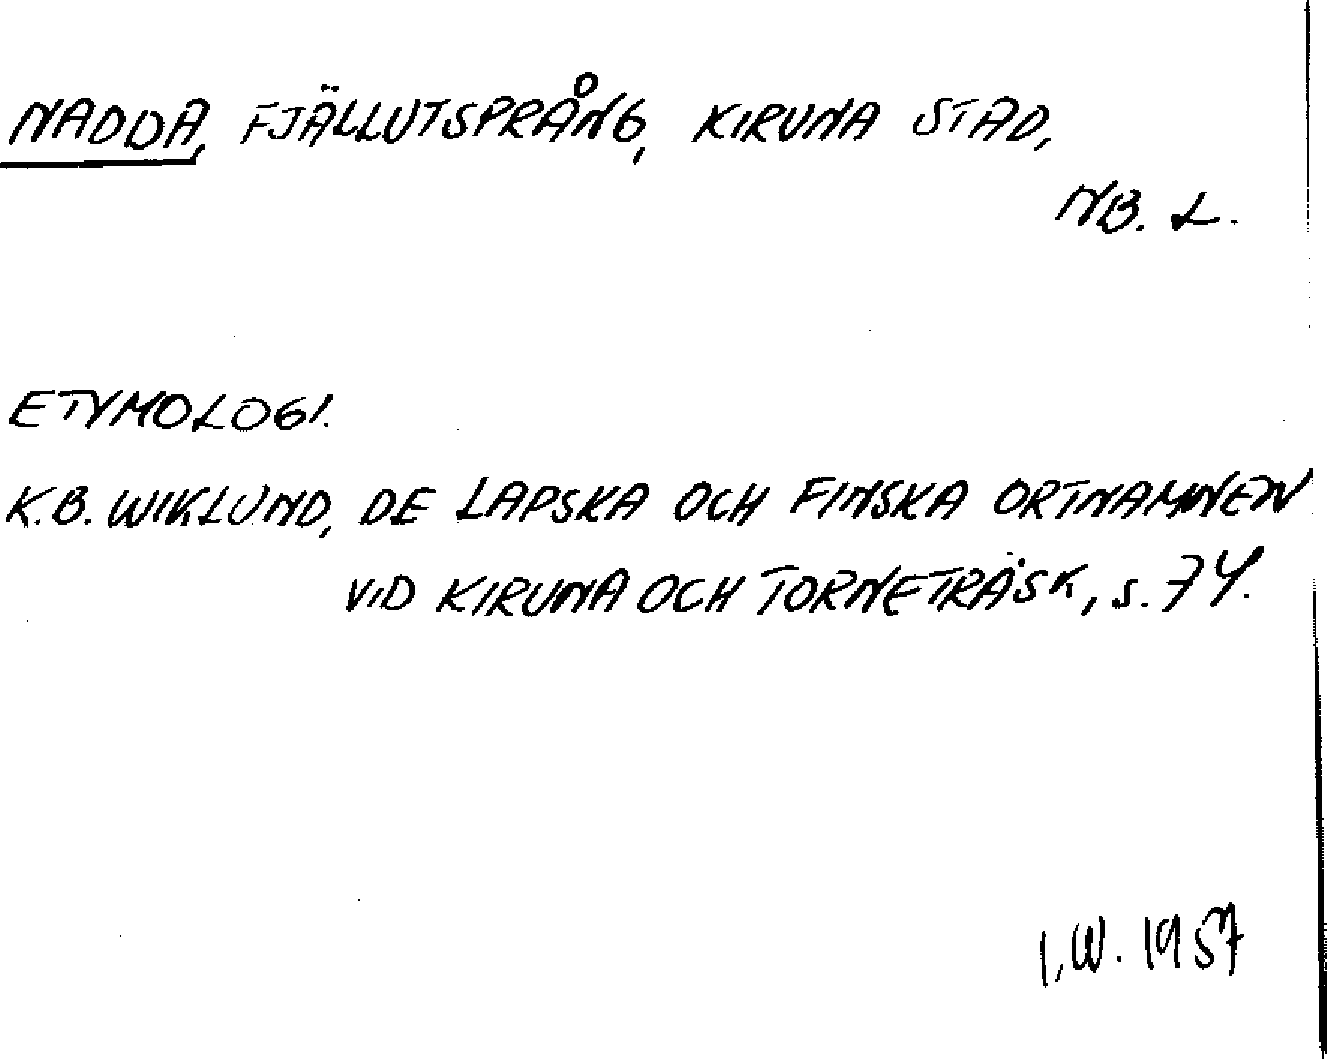 NADDA, FJÄLLUTSPRÅNG, KIRUNA STAD,
NB. L.
ETYMOLOGI.
K.B. WIKLUND, DE LAPSKA OCH FINSKA ORTNAMNEN
VID KIRUNA OCH TORNETRÄSK, s. 74.
I.W. 1957